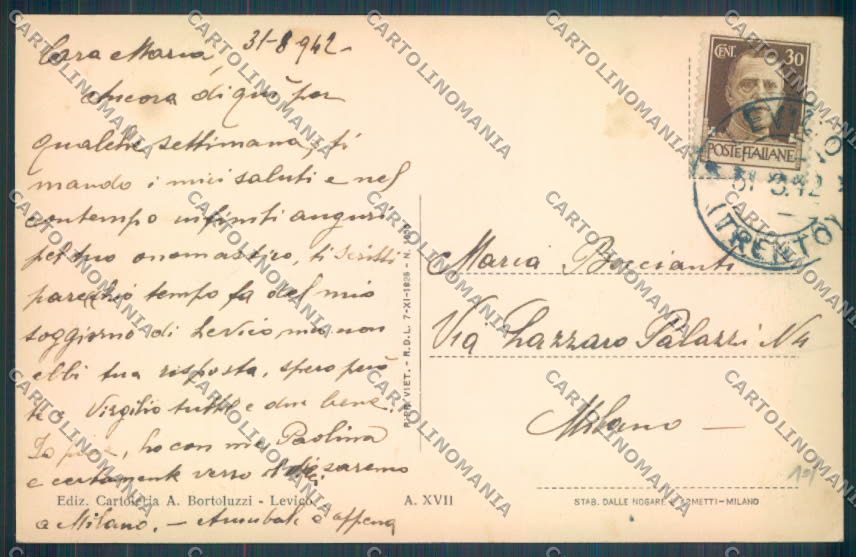 31-8-942-
Cara Maria,
Ancora di qui per
qualche settimana, ti
mando i miei saluti e nel
contempo infiniti auguri
pel tuo onomastico, ti scrissi
parecchio tempo fa del mio
soggiorno di Levico, ma non
ebbi tua risposta, spero però
te e Virgilio tutto e due bene.
Io pure, ho con me Paolina
e certamente verso il saremo
a Milano. - Annibale è appena
Ediz. Cartoleria A. Bortoluzzi - Levico
A. XVII
RIPR. VIET. - R.D.L. 7-XI-1925 - N.
CENT. 30
POSTE ITALIANE
LEVICO
31 8.42
(TRENTO)
Maria Boscianti
Via Lazzaro Palazzi N 4
Milano -
STAB. DALLE NOGARE & ARMETTI-MILANO
CARTOLINOMANIA